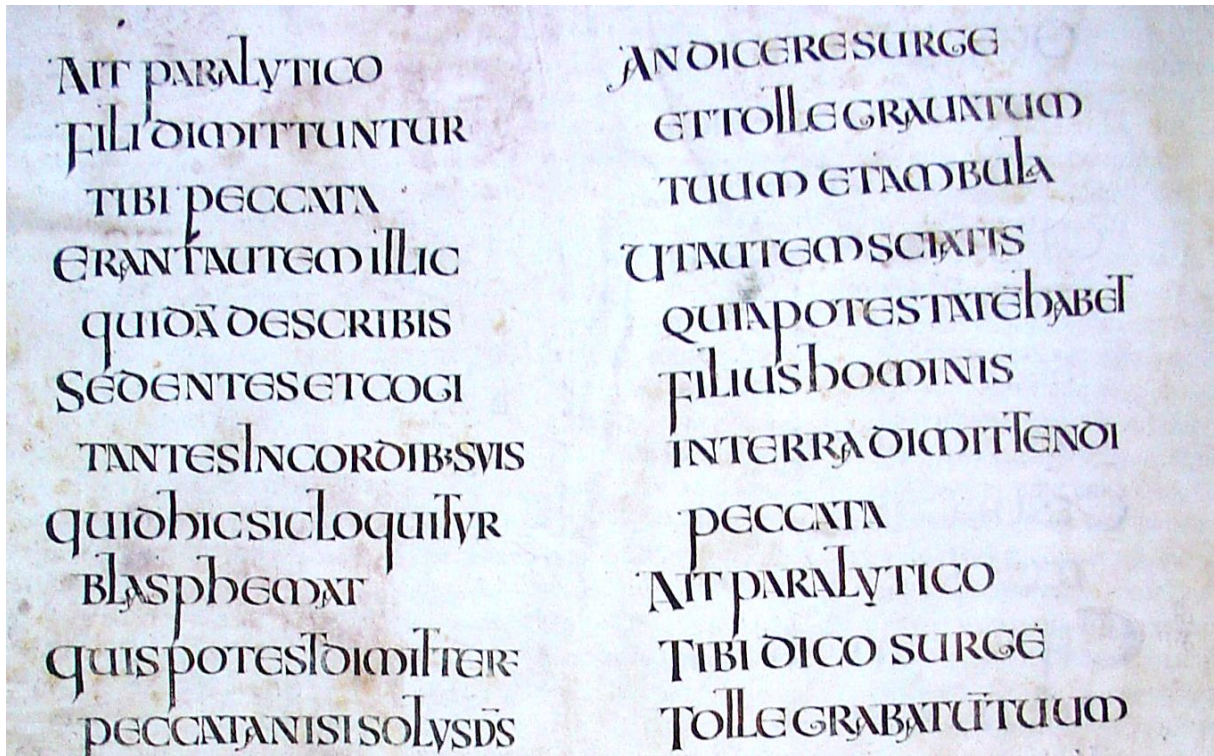 AIT PARALYTICO
FILI DIMITTUNTUR
TIBI PECCATA
ERANT AUTEM ILLIC
QUIDĀ DE SCRIBIS
SEDENTES ET COGI
TANTES IN CORDIB; SVIS
QUID HIC SIC LOQUITVR
BLASPHEMAT
QUIS POTEST DIMITTERE
PECCATA NISI SOLVS D̄S
AN DICERE SURGE
ET TOLLE GRAUATUM
TUUM ET AMBULA
UT AUTEM SCIATIS
QUIA POTESTATĒ HABET
FILIUS HOMINIS
IN TERRA DIMITTENDI
PECCATA
AIT PARALYTICO
TIBI DICO SURGE
TOLLE GRABATŪ TUUM